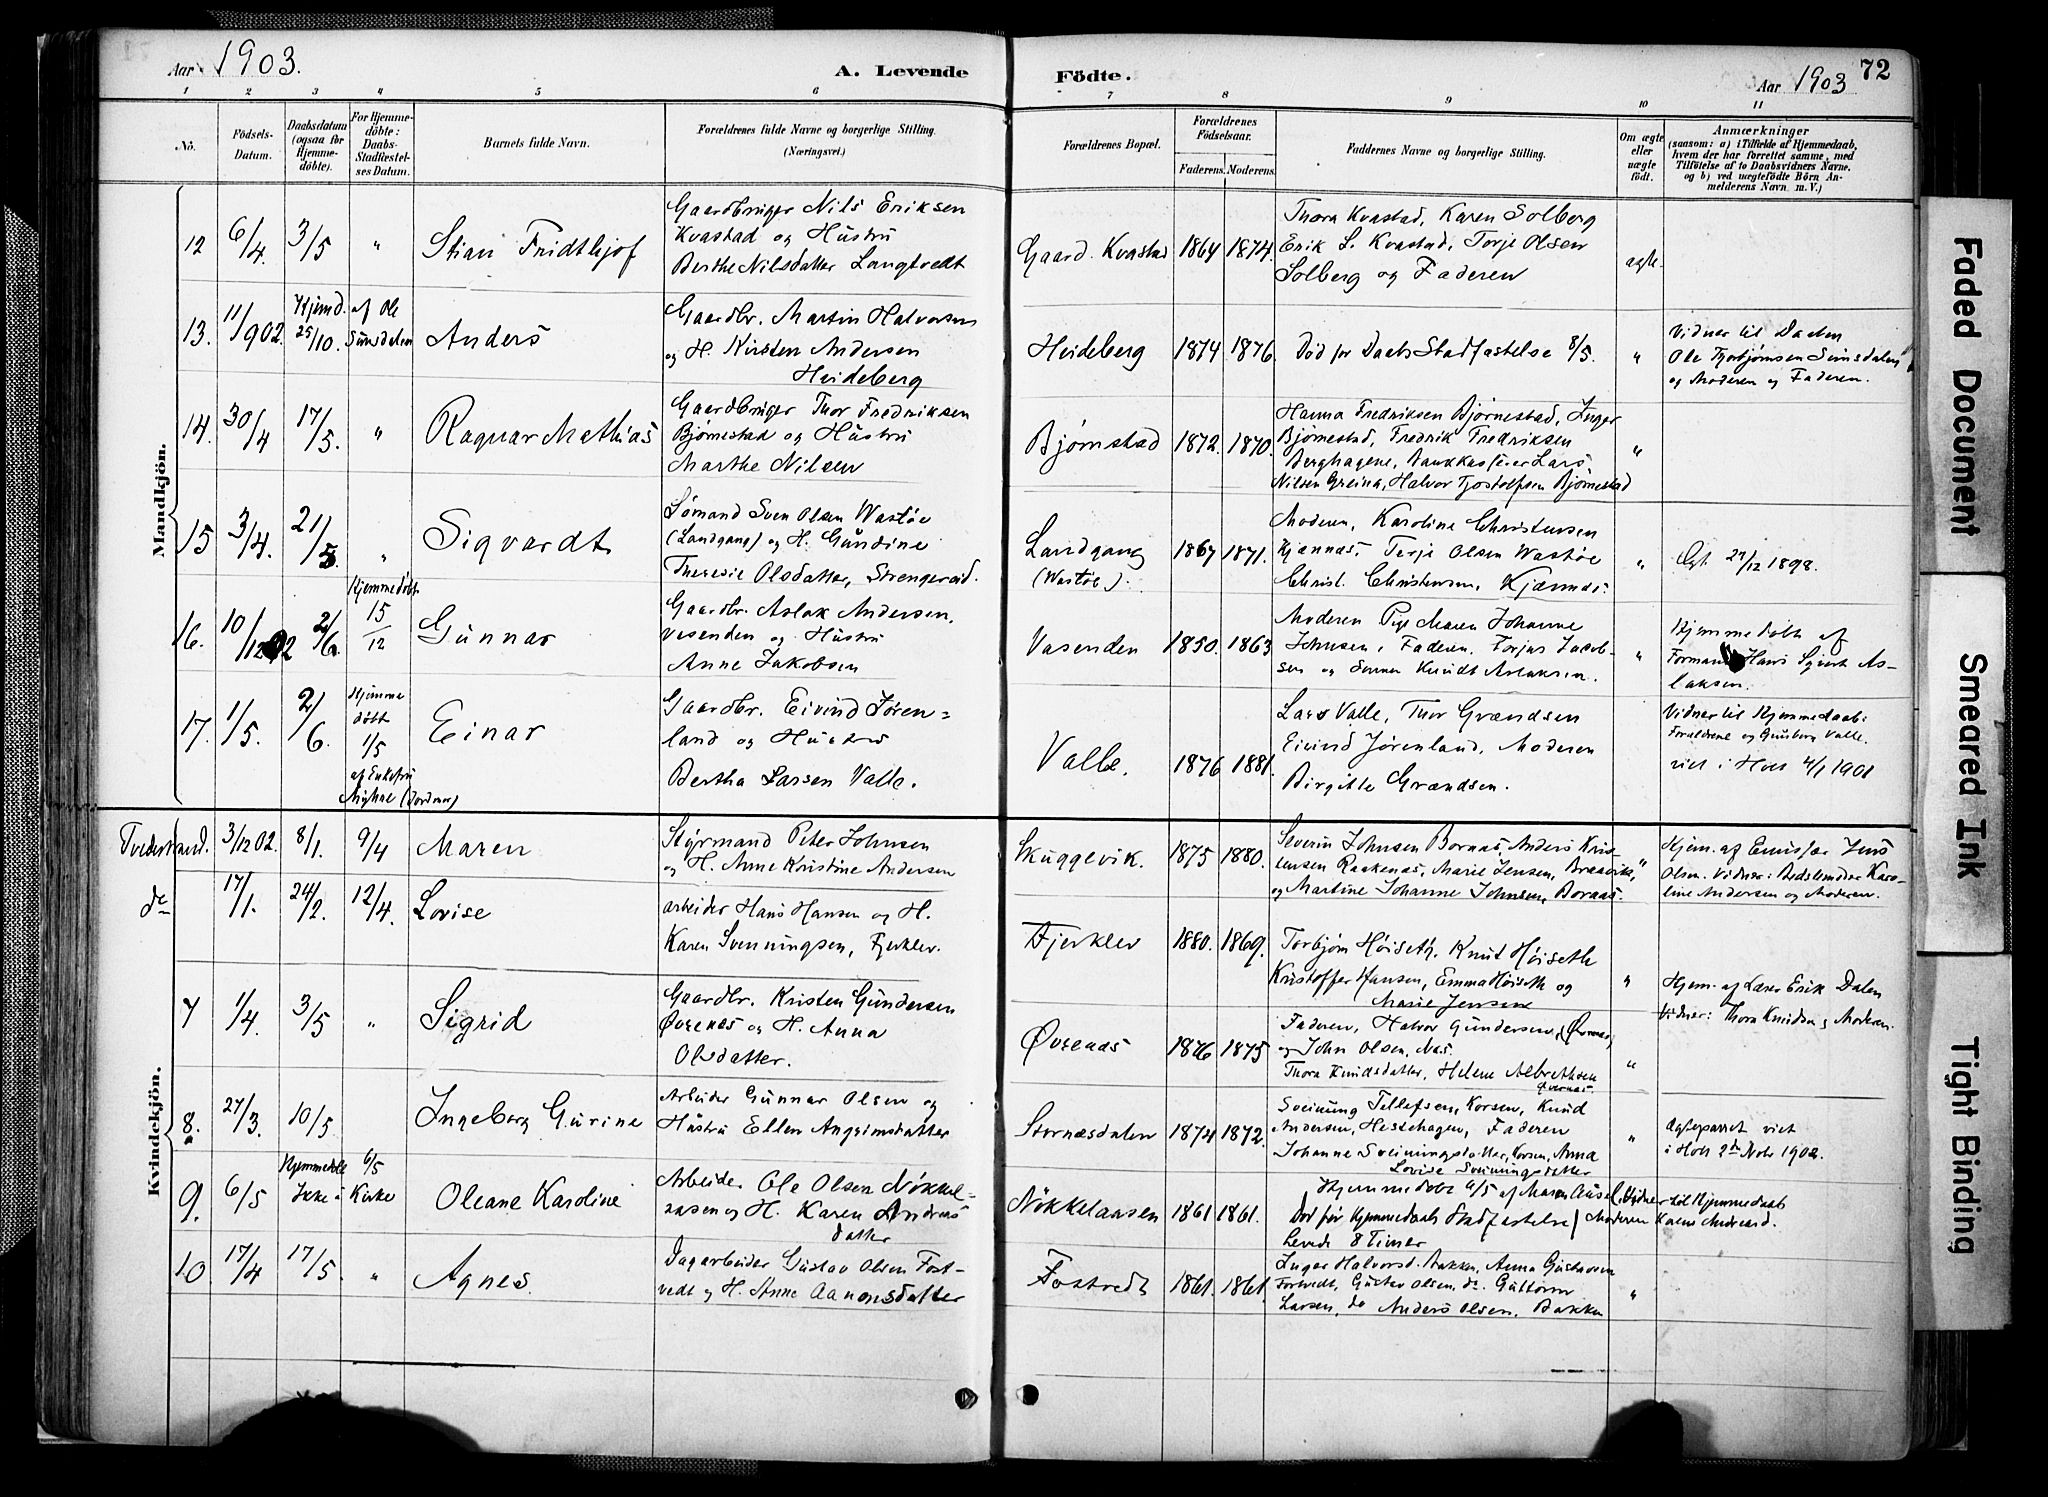 Aar 1903.
A. Levende
Födte.
Aar 1903
72
1 2 3 4 5 6 7 8 9 10 11
No.
Födsels-
Datum.
Daabsdatum
(ogsaa for
Hjemme-
döbte).
For Hjemme-
döbte:
Daabs-
Stadfæstel-
ses Datum.
Barnets fulde Navn.
Forældrenes fulde Navne og borgerlige Stilling.
(Næringsvei.)
Forældrenes Bopæl.
Forældrenes
Födselsaar.
Faderens. Moderens.
Faddernes Navne og borgerlige Stilling.
Om ægte
eller
uægte
födt.
Anmærkninger
(saasom: a) i Tilfælde af Hjemmedaab,
hvem der har forrettet samme, med
Tilföielse af to Daabsvidners Navne,
og b) ved uægtefödte Börn An-
melderens Navn m. V.)
Mandkjön.
12 6/4. 3/5 " Stian Fridthjof
Gaardbruger Nils Eriksen
Kvastad og Hustru
Berthe Nilsdatter Langtvedt
Gaard. Kvastad 1864 1874.
Thora Kvastad, Karen Solberg
Erik L. Kvastad, Torje Olsen
Solberg og Faderen
ægte.
13. 11/9 02. Hjemd. 25/10. af Ole Simsdalen Anders
Gaardbr. Martin Halvorsen
og H. Kirsten Andersen
Heideberg
Heideberg 1874 1876.
Død før Daabs Stadfastelse 8/5.
"
Vidner til Daaben
Ole Torbjørnsen Simsdalen
og Moderen og Faderen.
14. 30/4 17/5. " Ragnar Mathias
Gaardbruger Thor Fredriksen
Bjørnestad og Hustru
Marthe Nilsen
Bjørnstad 1872. 1870.
Hanna Fredriksen Bjørnestad, Inger
Bjørnestad, Fredrik Fredriksen
Berghagene, Bankkasserer Lars
Nilsen Greina, Halvor Tjostolfsen Bjørnestad
"
15 3/4. 21/5. " Sigvardt
Sømand Sven Olsen Wastøe
(Landgang) og H. Gundine
Theresie Olsdatter, Strengereid.
Landgang
(Wastøe).
1867 1871.
Moderen, Karoline Christensen
Kjænnas, Terje Olsen Wastøe
Christ. Christensen, Kjænnas.
" Ægt. 27/12 1898.
16. 10/12 02 2/6 Hjemmedøbt 15/12 Gunnar
Gaardbr. Aslak Andersen,
Vasenden og Hustru
Anne Jakobsen
Vasenden 1850. 1863
Moderen Pige Maren Johanne
Johnsen, Faderen, Torjus Jacob-
sen og Sønnen Knudt Aslaksen.
"
Hjemmedøbt af
Formand Hans Sjurt As-
laksen.
17. 1/5. 2/6. Hjemme
døbt
1/5
af Enkefru
Myhre (Jordmor)
Einar
Gaardbr. Eivind Jøren-
land og Hustru
Bertha Larsen Valle.
Valle. 1876 1881.
Lars Valle, Thor Grændsen
Eivind Jørenland, Moderen
Birgitte Grændsen.
Vidner til Hjemmedaab:
Forældrene og Gunborg Valle.
viet i Holt 4/1 1901
Kvindekjön.
Tvedestrand. 3/12 02. 8/1. 9/4 Maren
Styrmand Peter Johnsen
og H. Anne Kristine Andersen
Skuggevik. 1875 1880.
Severin Johnsen Bornas, Anders Kris-
tensen Raakenas, Marie Jensen, Braavik,
og Martine Johanne Johnsen, Boraas.
"
Hjem. af Jens
Olsen. Vidner: Karo-
line Andersen og Moderen.
do 17/1. 24/2. 12/4. Lovise
arbeider Hans Hansen og H.
Karen Svenningsen, Fjerklev.
Fjerklev 1880. 1869.
Torbjørn Høiseth, Knut Høiseth
Kristoffer Hansen, Emma Høiseth og
Marie Jensen
"
Hjem. af Lærer Erik Dalen
Vidner: Thora Knudsen og Moderen.
7 1/4. 3/5 " Sigrid
Gaardbr. Kristen Gundersen
Øvrenas og H. Anna
Olsdatter.
Øvrenas 1876 1875
Faderen, Halvor Gundersen, Øvrenas,
og John Olsen, Nas.
Thora Knudsdatter, Helene Albrethsen
Øvernas.
"
8. 27/3. 10/5 Ingeborg Gurine
Arbeider Gunnar Olsen og
Hustru Ellen Angrimsdatter
Stornæsdalen 1874 1872.
Sveinung Tellefsen, Korsen, Knud
Andersen, Hestehagen, Faderen
Johanne Sveinungsdatter, Korsen, Anna
Lovise Sveinungsdatter
"
Ægteparret viet
i Holt 2den Nobr 1902.
9. 6/5 Hjemmedøbt 6/5
Ikke i Kirke
Oleane Karoline
Arbeider Ole Olsen Nøkkel-
aasen og H. Karen Andreas-
datter
Nøkkelaasen 1861 1861.
Hjemmedøbt 6/5 af Maren
Død før Hjemmedaabs Stadfastelse
Levede 8 Timer
Vidner til Hjemmedaab
Moderen Karen Andreasd.
10 17/4 17/5. " Agnes.
Dagarbeider Gustav Olsen Fost-
vedt og H. Anne Aanonsdatter
Fostvedt 1861. 1861.
Inger Halvorsd. Bakken, Anna Gustavsen
Fostvedt, Gustav Olsen, do. Guttorm
Larsen, do Anders Olsen, Bakken
"
Faded Document
Smeared Ink
Tight Binding